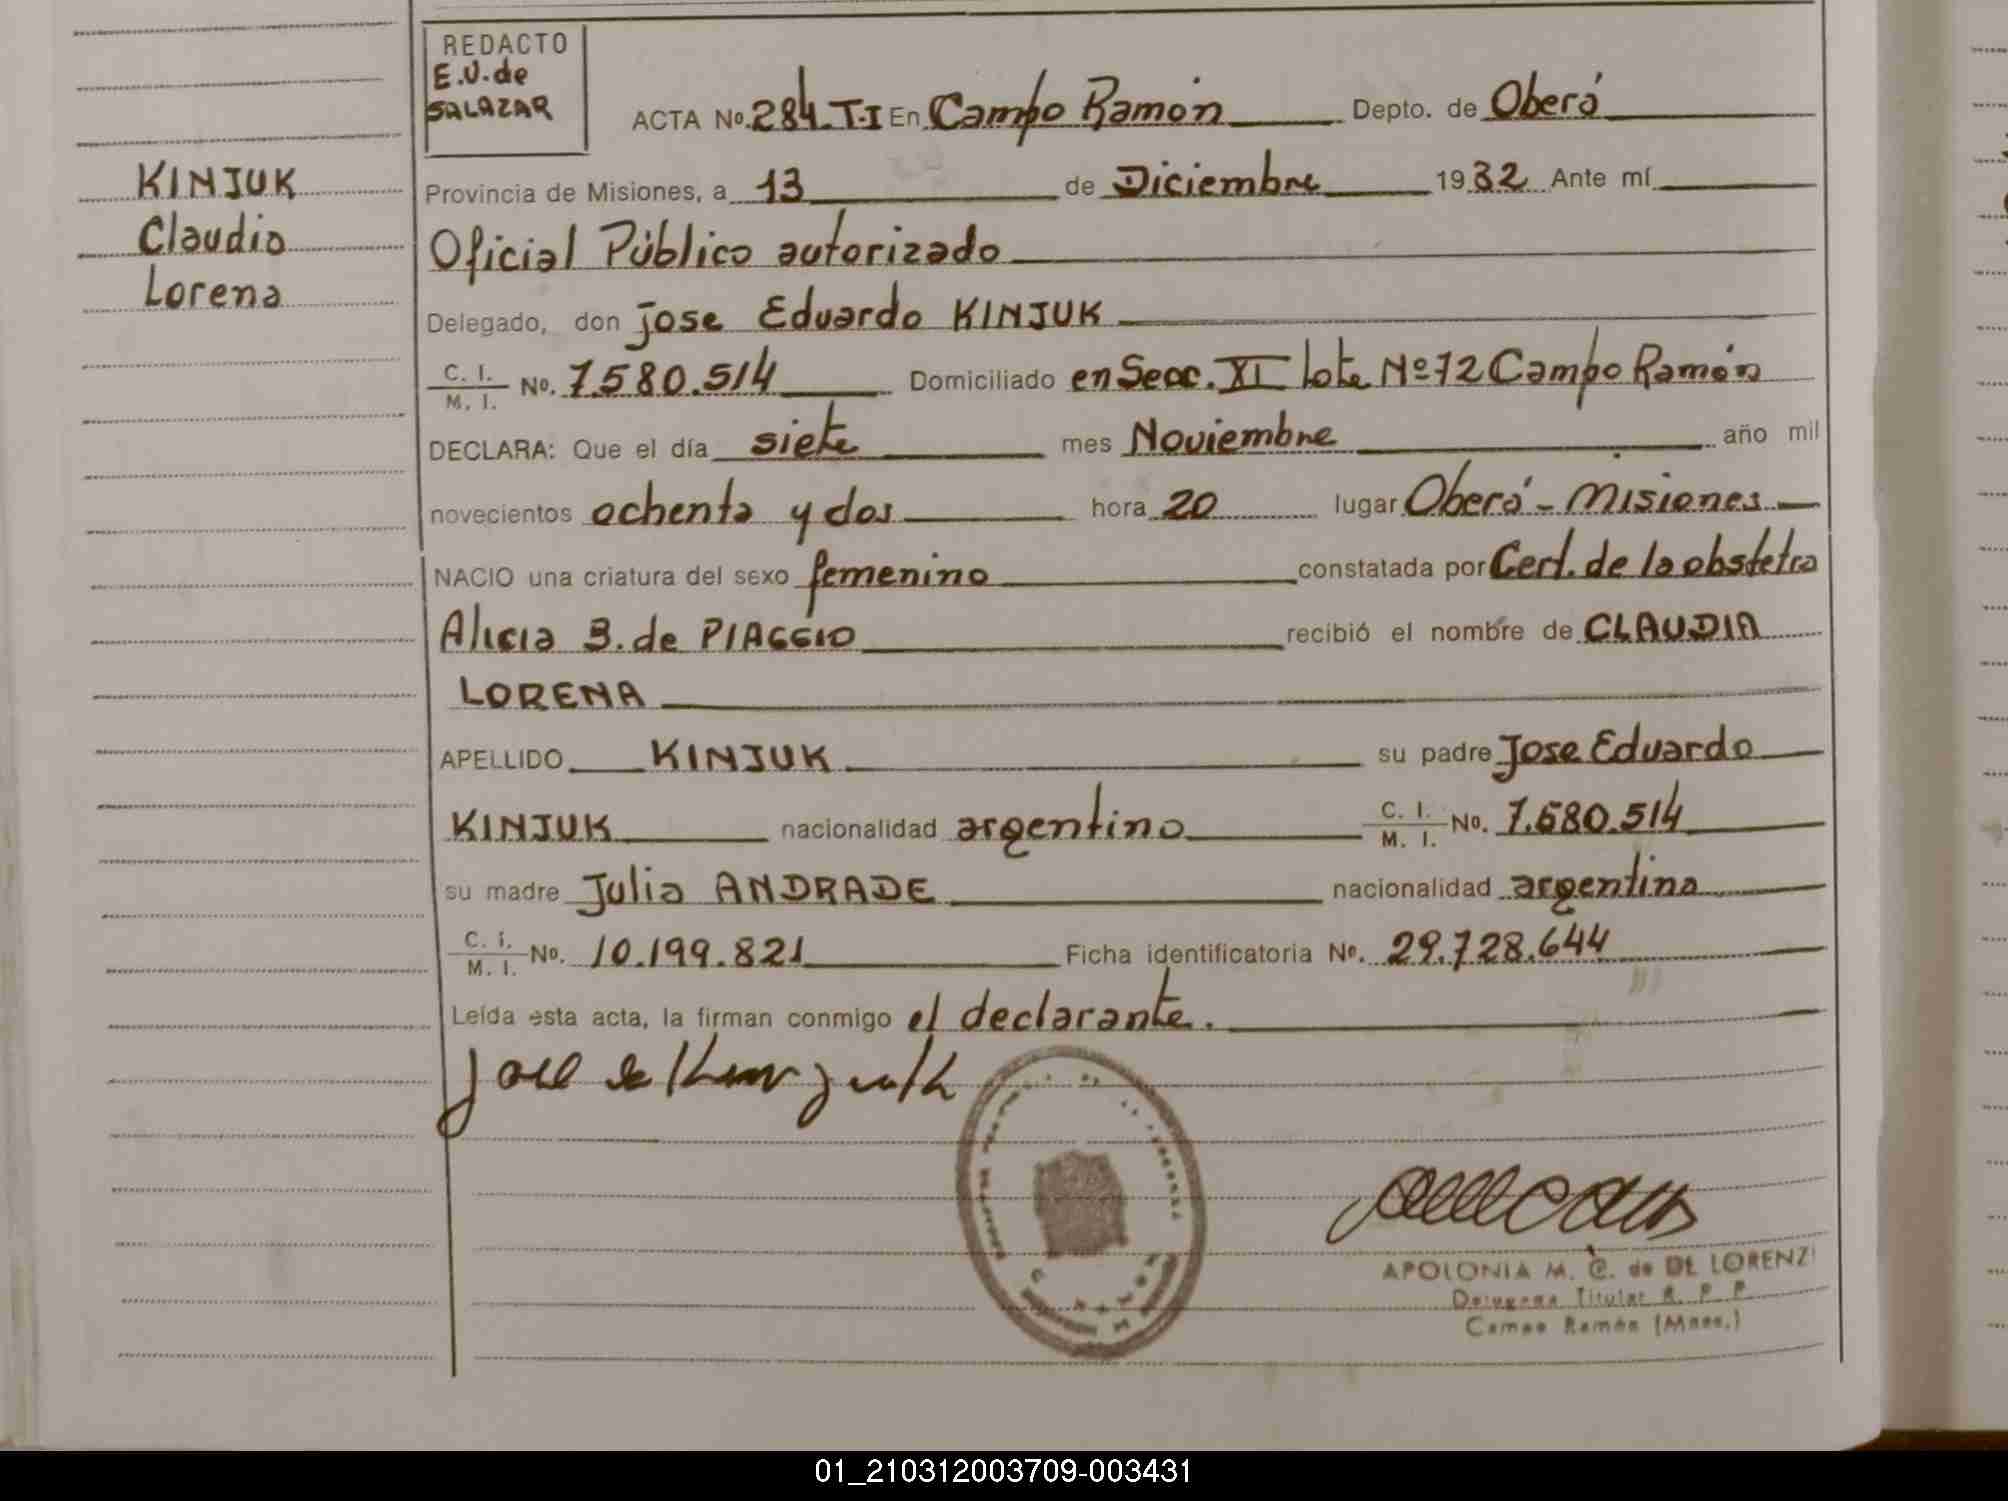 REDACTO
E.U. de
SALAZAR
ACTA No. 284 T-I En Campo Ramón Depto. de Oberá
KINJUK
Claudia
Lorena
Provincia de Misiones, a 13 de Diciembre 1982 Ante mí
Oficial Público autorizado
Delegado, don jose Eduardo KINJUK
C. I. / M. I. No. 7.580.514 Domiciliado en Secc. XI lote Nº 72 Campo Ramón
DECLARA: Que el día siete mes Noviembre año mil
novecientos ochenta y dos hora 20 lugar Oberá - Misiones
NACIO una criatura del sexo femenino constatada por Cert. de la obstetra
Alicia B. de PIAGGIO recibió el nombre de CLAUDIA
LORENA
APELLIDO KINJUK su padre Jose Eduardo
KINJUK nacionalidad argentino C. I. / M. I. No. 7.580.514
su madre Julia ANDRADE nacionalidad argentina
C. I. / M. I. No. 10.199.821 Ficha identificatoria No. 29.728.644
Leída esta acta, la firman conmigo el declarante.
APOLONIA M. C. de DE LORENZI
Delegada Titular R. P. P.
Campo Ramón (Mnes.)
01_210312003709-003431